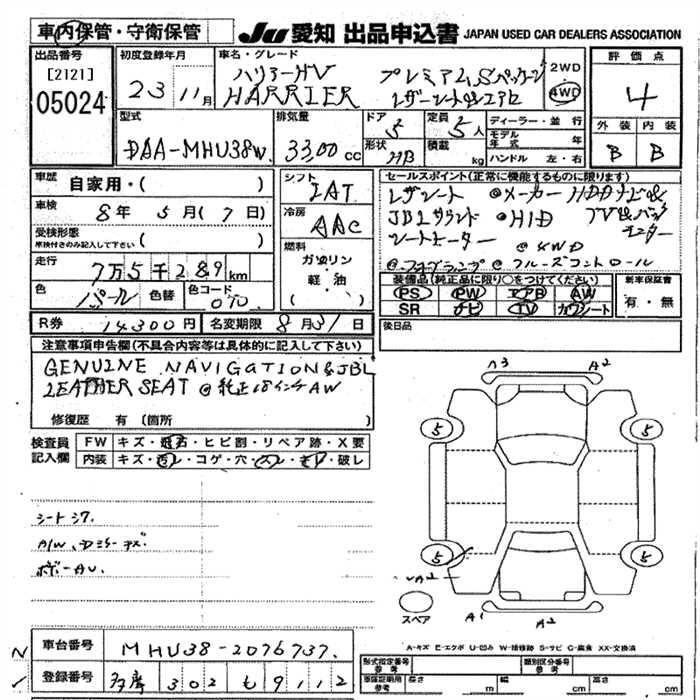 車内保管・守衛保管 JU 愛知 出品申込書 JAPAN USED CAR DEALERS ASSOCIATION
出品番号 [2121] 05024
初度登録年月 23 11月
車名・グレード ハリアーHV HARRIER プレミアムSパッケージ レザーシート&エアロ 2WD 4WD
評価点 4
外装 内装
B B
型式 DAA-MHU38W
排気量 3300cc
ドア 5 形状 HB
定員 5人 積載 kg
ディーラー・並行
モデル年式 年
ハンドル 左・右
車歴 自家用・( )
車検 8年5月(7日)
受検形態 車検付きのみ記入して下さい ( )
走行 7万5千289km
色 パール 色替 色コード 070
シフト IAT
冷房 AAC
燃料 ガソリン 軽油
セールスポイント(正常に機能するものに限ります)
レザーシート @メーカーHDDナビ&
JBLサウンド @HID TV&バック
シートヒーター @4WD モニター
@フォグランプ @クルーズコントロール
装備品(純正品に限り○をつけてください) 新車保証書
PS PW エアB AW 有・無
SR ナビ TV カワシート
R券 14300円 名変期限 8月31日
後日品
注意事項申告欄(不具合内容等は具体的に記入して下さい)
GENUINE NAVIGATION&JBL
LEATHER SEAT @純正18インチAW
修復歴 有(箇所
検査員記入欄 FW キズ・飛石・ヒビ割・リペア跡・X要
内装 キズ・汚レ・コゲ・穴・スレ・キレ・破レ
シートシワ
A/W、
ボデーAU.
A3 A2
5 5
5 5
A2
スペア A1 A2
A-キズ E-エクボ U-凹み W-補修跡 S-サビ C-腐食 XX-交換済
車台番号 MHU38-2076737
登録番号 多摩 302 も 9112
形式指定番号 参考 類別区分番号 参考
車検証期間 参考 長さ cm 幅 cm 高さ cm